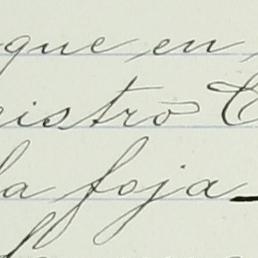 que en
istro C
la foja